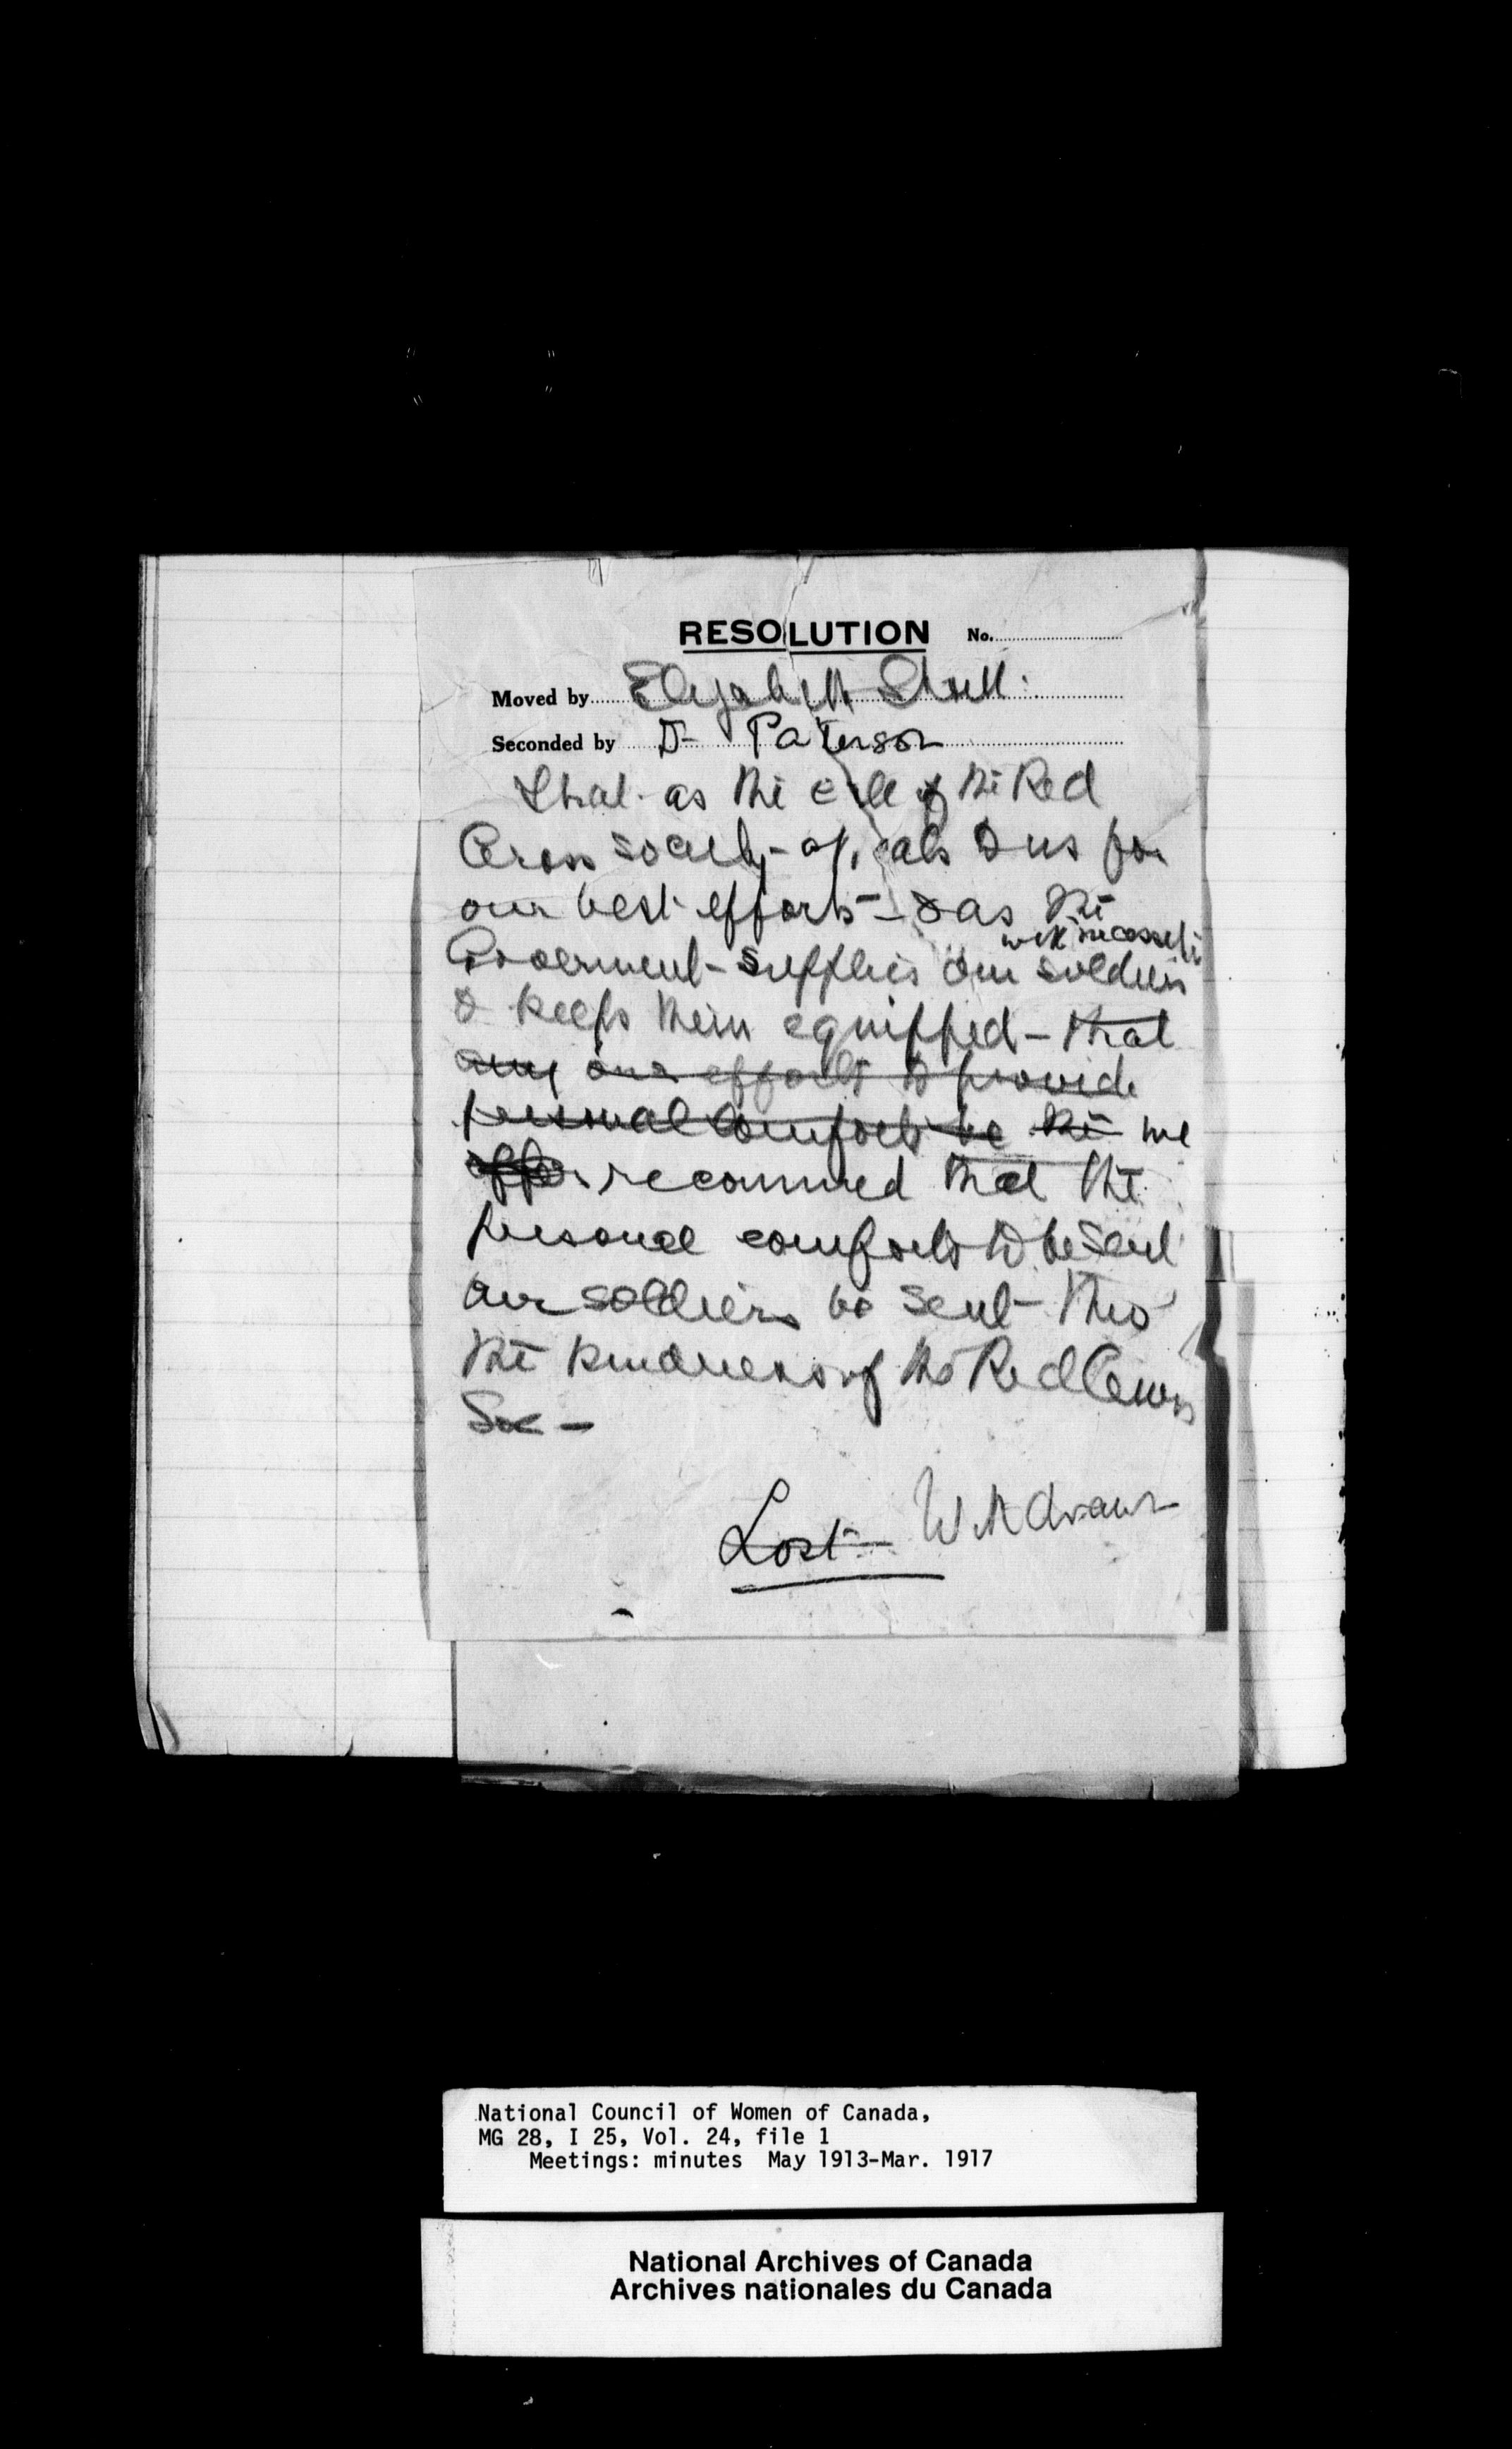 RESOLUTION No.
Moved by Elizabeth Shell.
Seconded by Dr Paterson
That as the call of the Red
Cross society - apeals to us for
our best efforts - & as the
with necessaries
Goverment - supplies our soldiers
& keeps them equipped - that
any our efforts to provide
personal comforts be the we
offer recommed that the
personal comforts to be sent
our soldiers be sent - thro'
the kindness of the Red Cross
Soc -
Lost - Withdrawn
National Council of Women of Canada,
MG 28, I 25, Vol. 24, file 1
Meetings: minutes May 1913-Mar. 1917
National Archives of Canada
Archives nationales du Canada